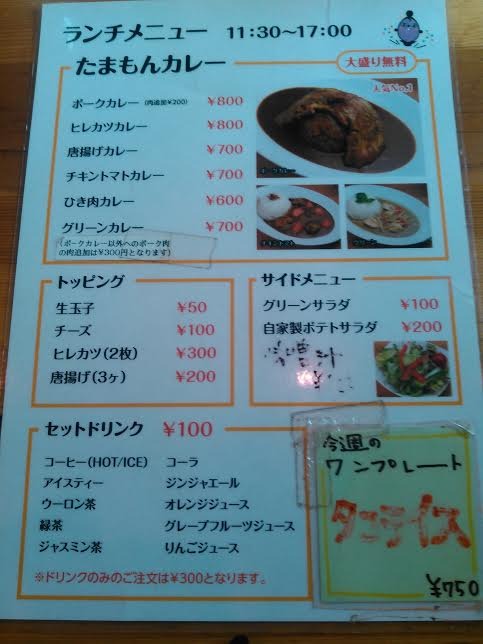 ランチメニュー 11:30〜17:00
たまもんカレー
大盛り無料
ポークカレー (肉追加¥200) ¥800
ヒレカツカレー ¥800
唐揚げカレー ¥700
チキントマトカレー ¥700
ひき肉カレー ¥600
グリーンカレー ¥700
(ポークカレー以外へのポーク肉
の肉追加は¥300円となります)
人気No.1
ポークカレー
チキントマト
グリーン
トッピング
生玉子 ¥50
チーズ ¥100
ヒレカツ(2枚) ¥300
唐揚げ(3ヶ) ¥200
サイドメニュー
グリーンサラダ ¥100
自家製ポテトサラダ ¥200
味噌汁
セットドリンク ¥100
コーヒー(HOT/ICE) コーラ
アイスティー ジンジャエール
ウーロン茶 オレンジジュース
緑茶 グレープフルーツジュース
ジャスミン茶 りんごジュース
※ドリンクのみのご注文は¥300となります。
今週の
ワンプレート
タコライス
¥750